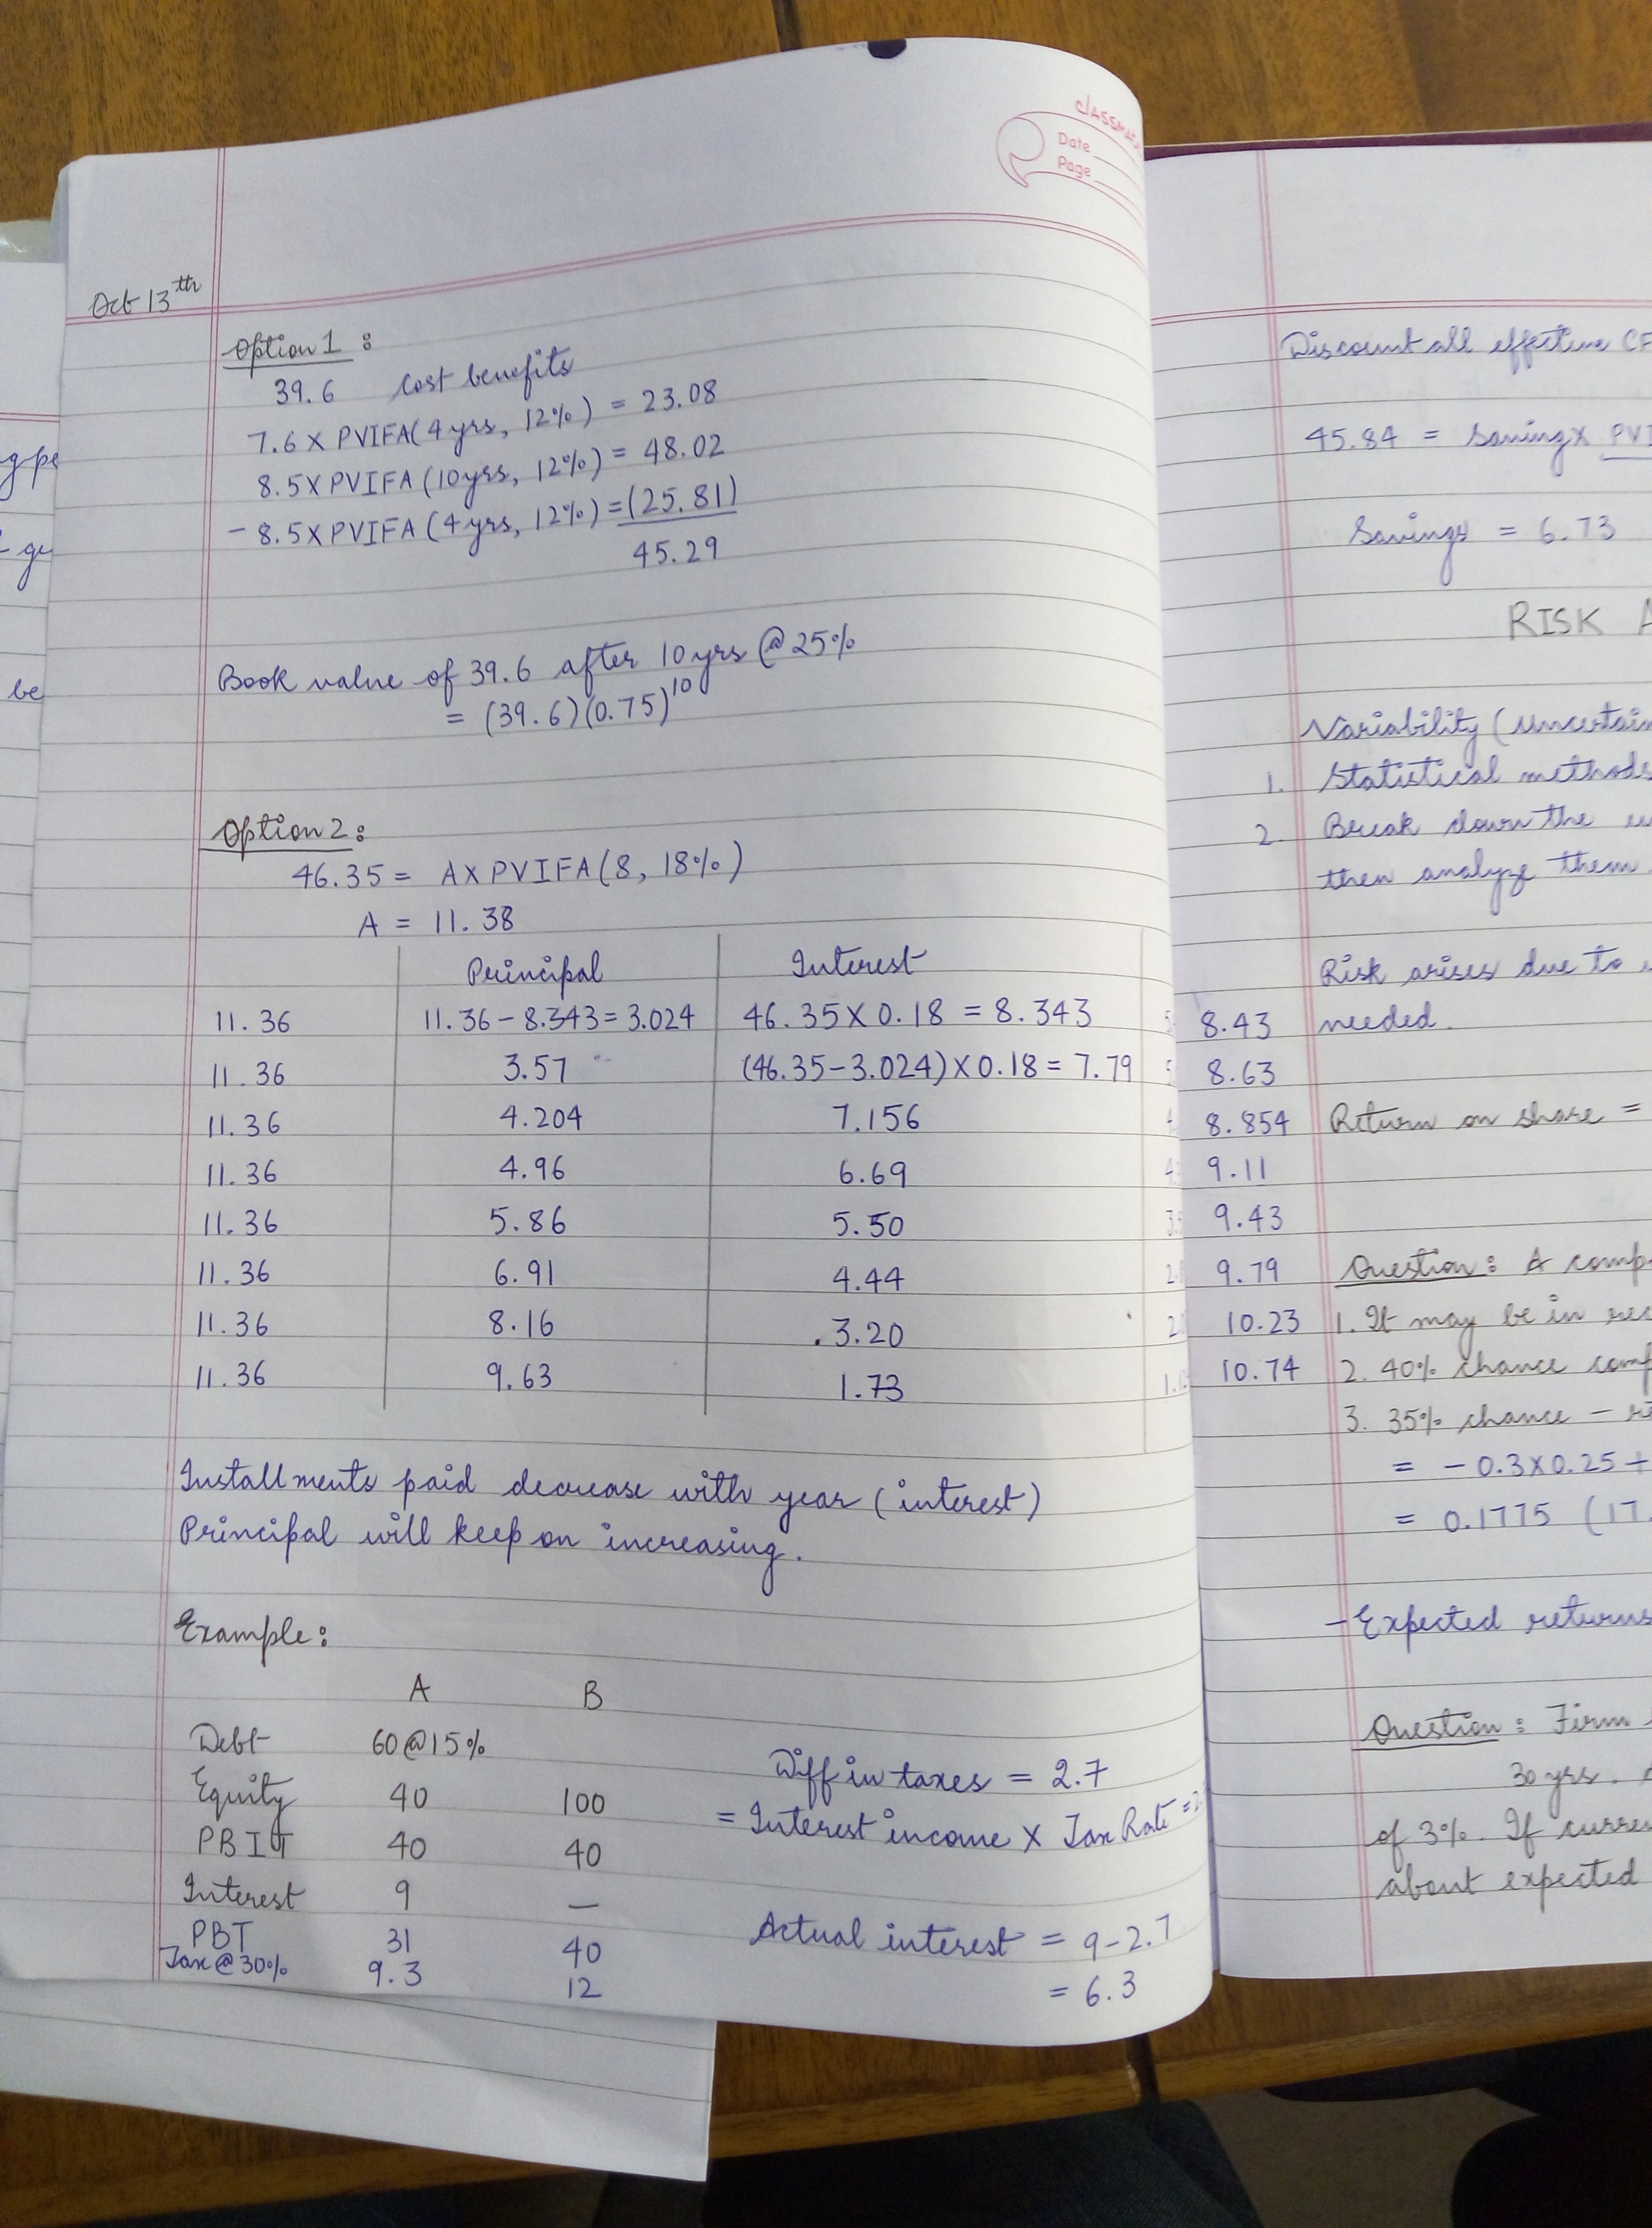 classmate
Date
Page
Oct 13th
Option 1 :
39.6 Cost benefits
7.6 X PVIFA(4yrs, 12%) = 23.08
8.5X PVIFA (10yrs, 12%) = 48.02
- 8.5X PVIFA (4yrs, 12%) = (25.81)
45.29
Book value of 39.6 after 10yrs @ 25%
= (39.6)(0.75)^10
Option 2 :
46.35 = AX PVIFA(8, 18%)
A = 11.38
Principal Interest
11.36 11.36 - 8.343 = 3.024 46.35 X 0.18 = 8.343
11.36 3.57 (46.35-3.024) X 0.18 = 7.79
11.36 4.204 7.156
11.36 4.96 6.69
11.36 5.86 5.50
11.36 6.91 4.44
11.36 8.16 3.20
11.36 9.63 1.73
Installments paid decrease with year (interest)
Principal will keep on increasing.
Example :
A B
Debt 60@15%
Equity 40 100
PBIT 40 40
Interest 9 —
PBT 31 40
Tax@30% 9.3 12
Diff in taxes = 2.7
= Interest income X Tax Rate =
Actual interest = 9-2.7
= 6.3
Discount all effective CF
45.84 = Saving X
Savings = 6.73
RISK
Variability (
1. Statistical methods
2. Break down the
then analyze them
Risk arises due to
8.43 needed.
8.63
8.854 Return on share =
9.11
9.43
9.79 Question : A
10.23 1. It may be in
10.74 2. 40% chance
3. 35% chance -
= - 0.3X0.25 +
= 0.1775 (17.
- Expected returns
Question : Firm
30 yrs.
of 3%. If
about expected
be